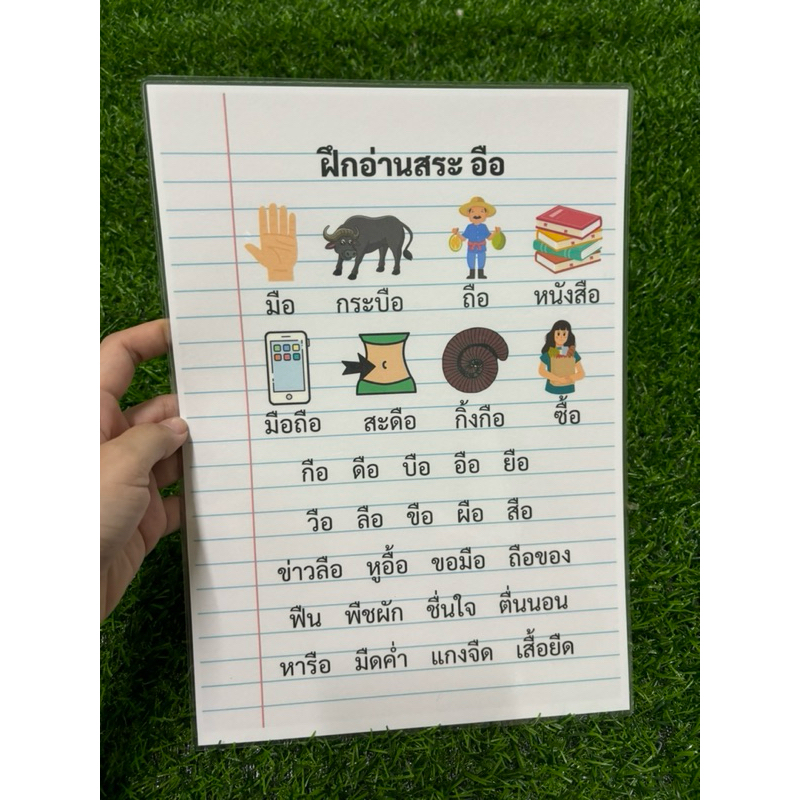 ฝึกอ่านสระ อือ
มือ กระบือ ถือ หนังสือ
มือถือ สะดือ กิ้งกือ ซื้อ
กือ ดือ บือ อือ ยือ
วือ ลือ ขือ ผือ สือ
ข่าวลือ หูอื้อ ขอมือ ถือของ
ฟืน พืชผัก ชื่นใจ ตื่นนอน
หารือ มืดค่ำ แกงจืด เสื้อยืด